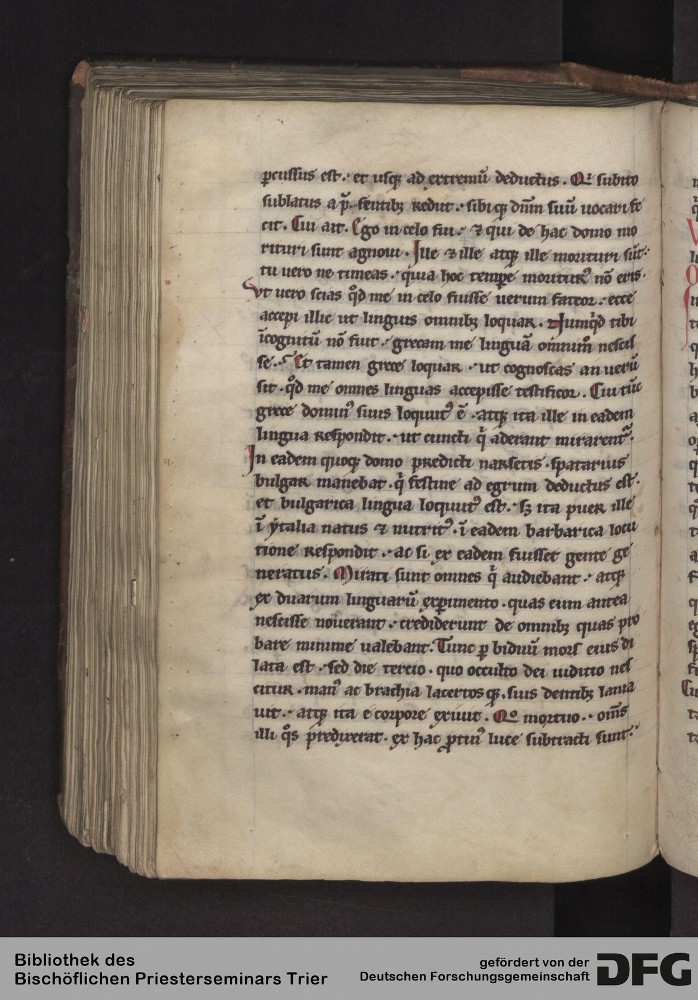 ꝑcussus est · et usqꝫ ad extremũ deductus . Qͥ subito
sublatus a p̃sentibꝫ redut · sibiqꝫ dñm suũ uocari fe
cit . Cui ait . Ego in celo fui · ⁊ qui de hac domo mo
rituri sunt agnoui . Ille ⁊ ille atqꝫ ille morituri sũt ·
tu uero ne timeas · quia hoc tempe moriturꝰ nõ eris ·
Vt uero scias qͩd me in celo fuisse uerum fateor · ecce
accepi illic ut linguis omnibꝫ loquar . Numqͩd tibi
ĩcognitũ nõ fuit · grecam me linguã omnim̃ nescis
se · Et tamen grece loquar · ut cognoscas an uerũ
sit · qͩd me omnes linguas accepisse testificor . Cui tũc
grece dominꝰ suus loquutꝰ ẽ · atqꝫ ita ille in eadem
lingua respondit · ut cuncti qͥ aderant mirarentᷣ .
In eadem quoqꝫ domo predicti narsetis · spatarius
bulgar manebat · qͥ festine ad egrum deductus est ·
et bulgarica lingua loquutꝰ est · sꝫ ita puer ille
ĩ ytalia natus ⁊ nutritꝰ · ĩ eadem barbarica locu
tione respondit · ac si ex eadem fuisset gente ge
neratus . Mirati sunt omnes qͥ audiebant · atqꝫ
ex duarum linguarũ exꝑimento · quas eum antea
nescisse nouerant · crediderunt de omnibꝫ quas pro
bare minime ualebant . Tunc ꝑ biduũ mors eius di
lata est · sed die tercio · quo occulto dei iuditio nes
citur · manꝰ ac brachia lacertosqꝫ suis dentibꝫ lania
uit · atqꝫ ita e corpore exiuit . Qͦ mortuo · om̃s
illi qͦs predixerat · ex hac ꝓtinꝰ luce subtracti sunt ·
Bibliothek des
Bischöflichen Priesterseminars Trier
gefördert von der
Deutschen Forschungsgemeinschaft
DFG